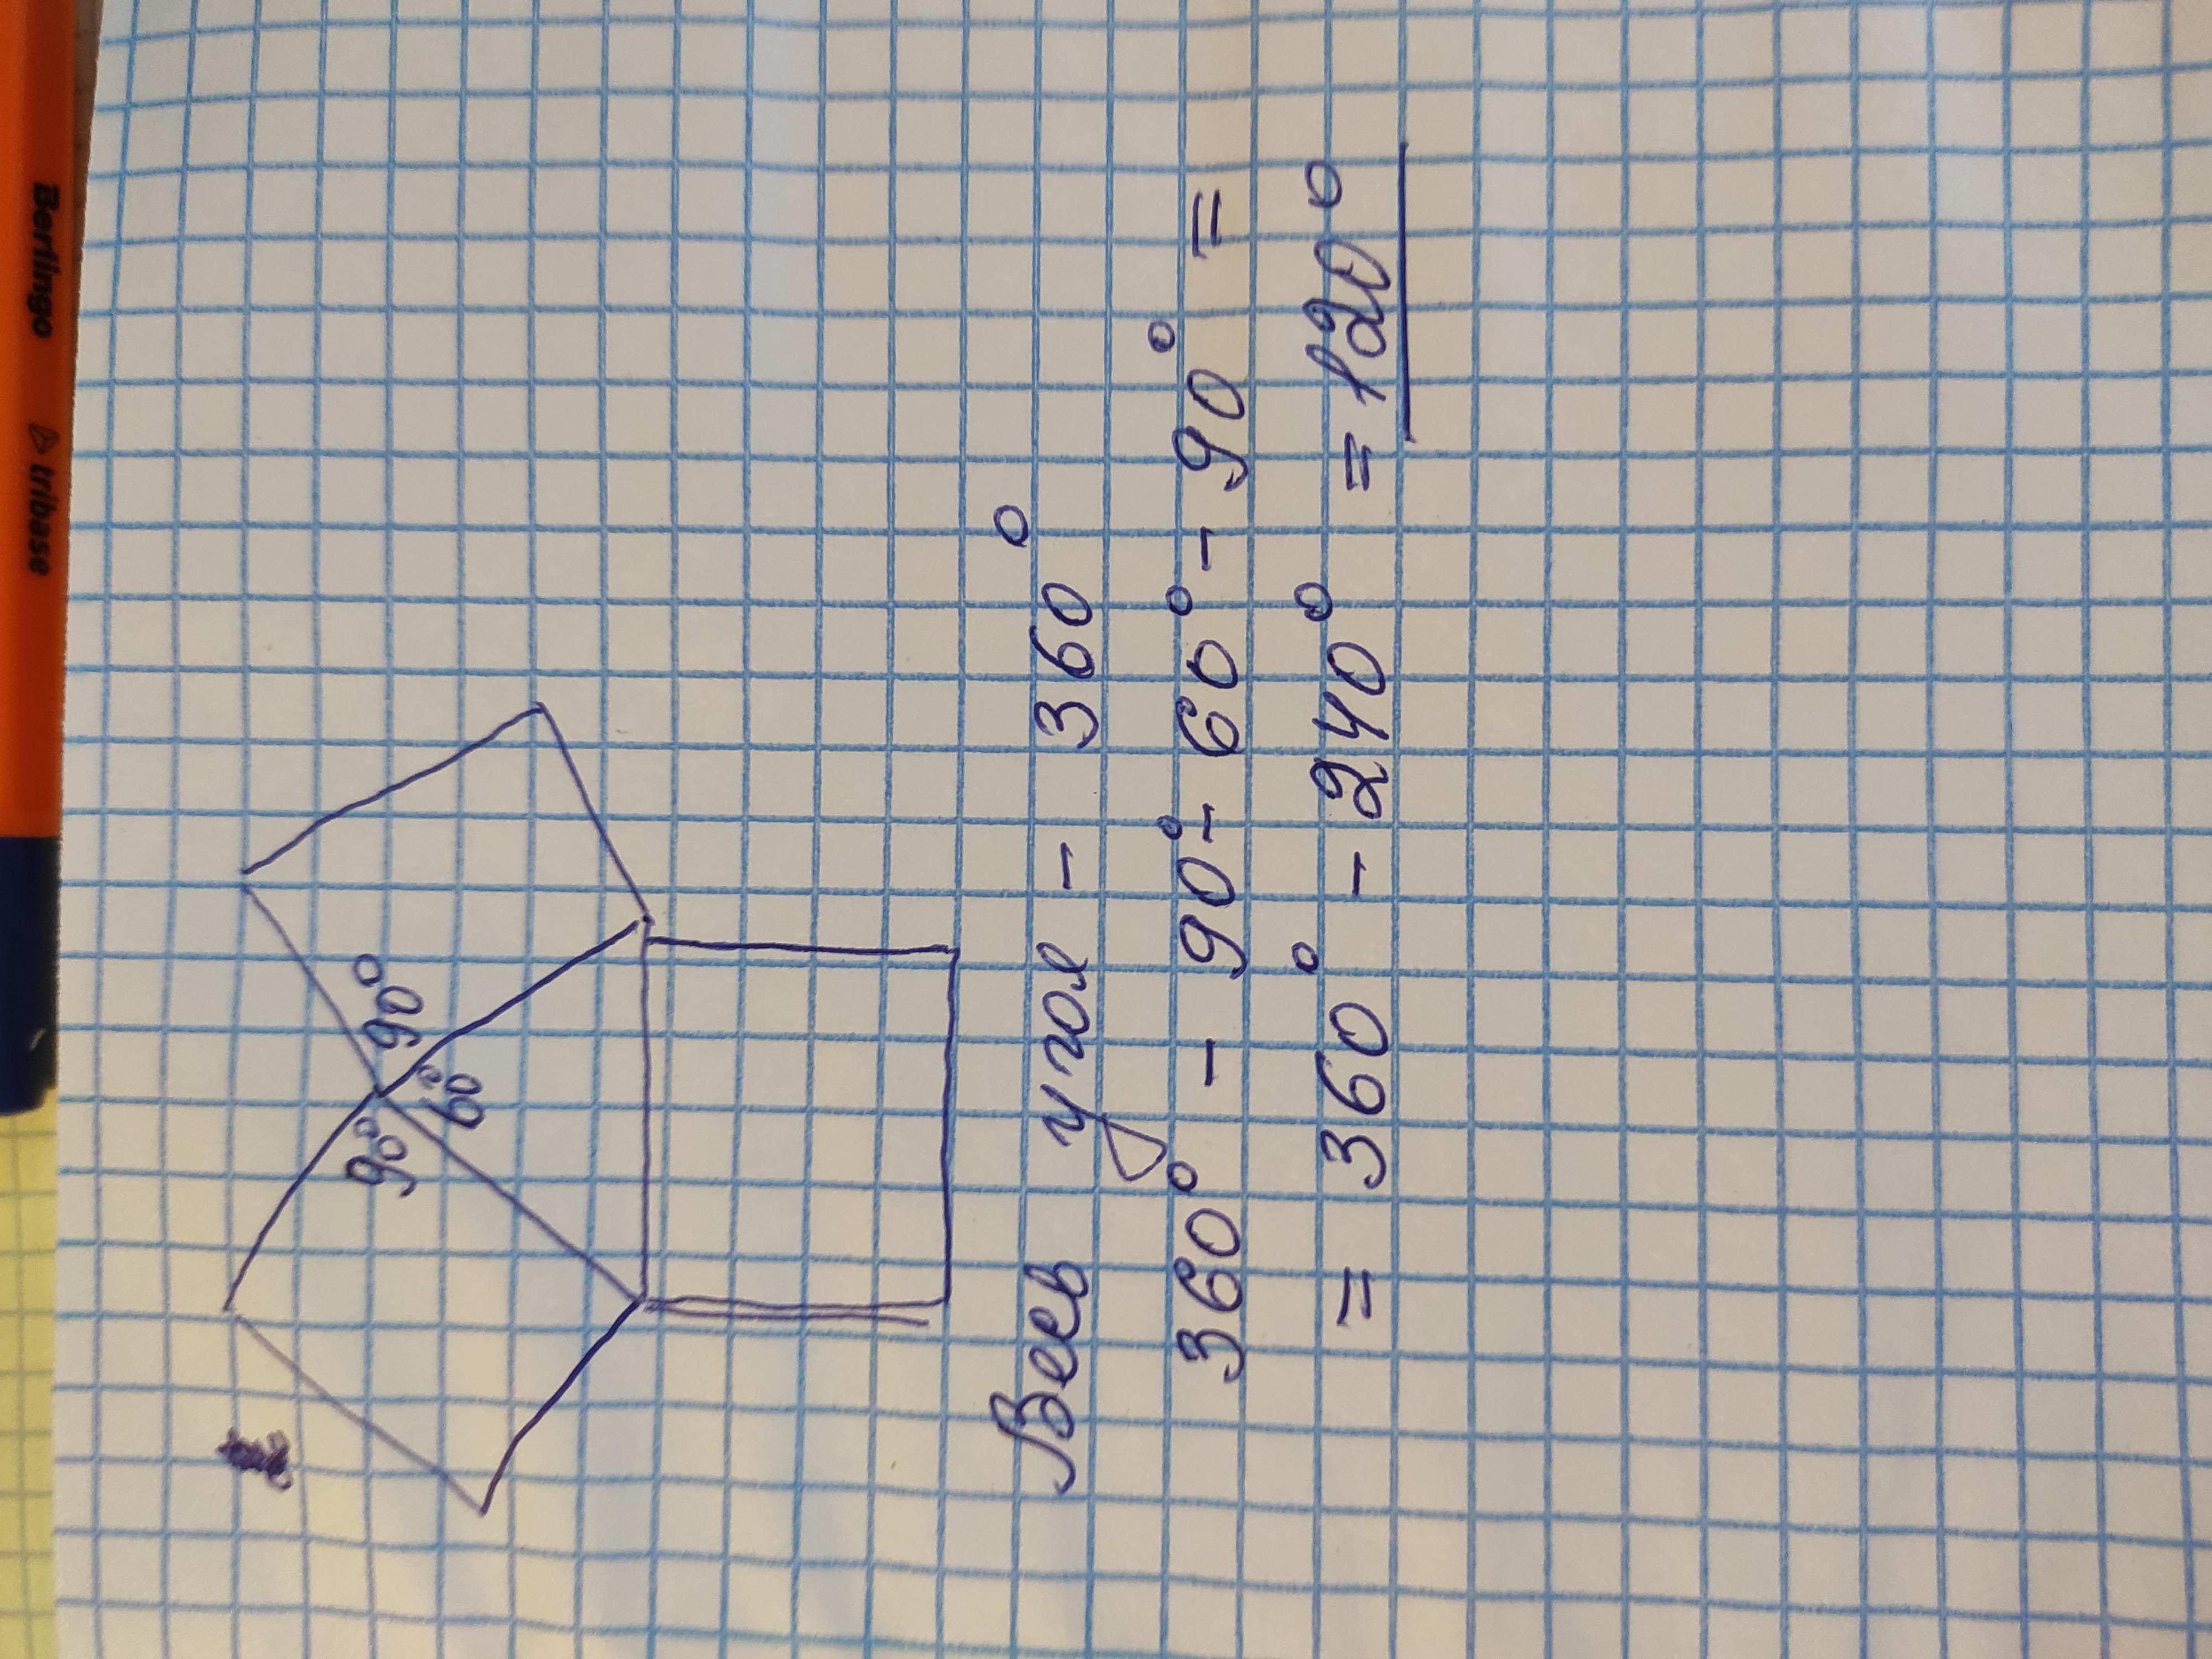 Berlingo tribase
90°
90°
60°
Весь угол - 360°
360° - 90° - 60° - 90° =
= 360° - 240° = 120°